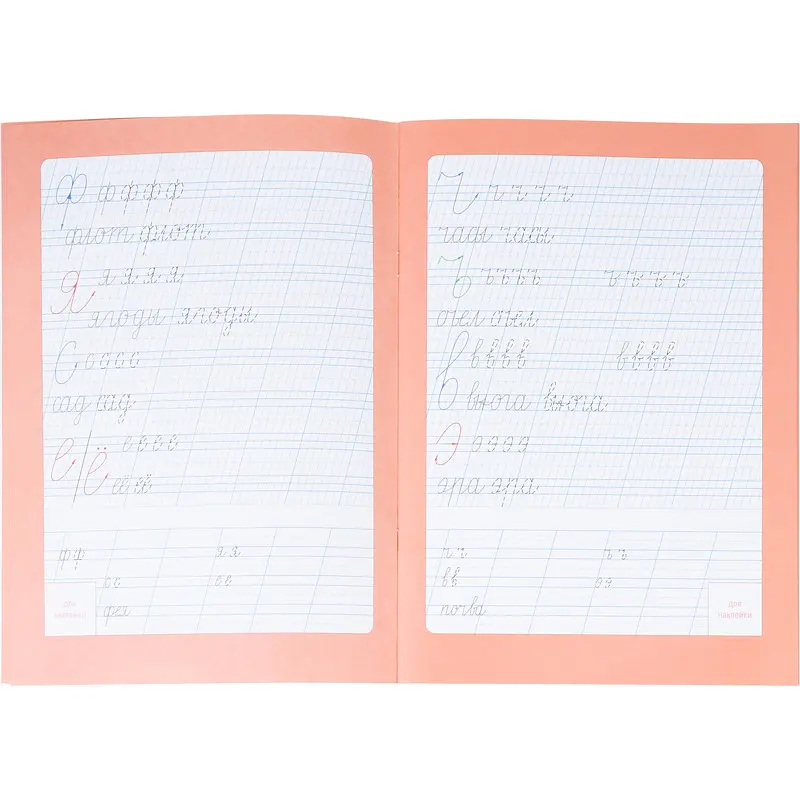 ф ф ф ф ф
флот флот
я я я я я
ягоды ягоды
с с с с с
сад сад
е/ё е е е е
её её
ф ф я я
с с е е
фея
для наклейки
ч ч ч ч ч
часы часы
ъ ъ ъ ъ ъ ъ ъ ъ ъ
в в в в в в в в в
вьюга вьюга
э э э э э
эра эра
ч ч ъ ъ
в в э э
почва
для наклейки